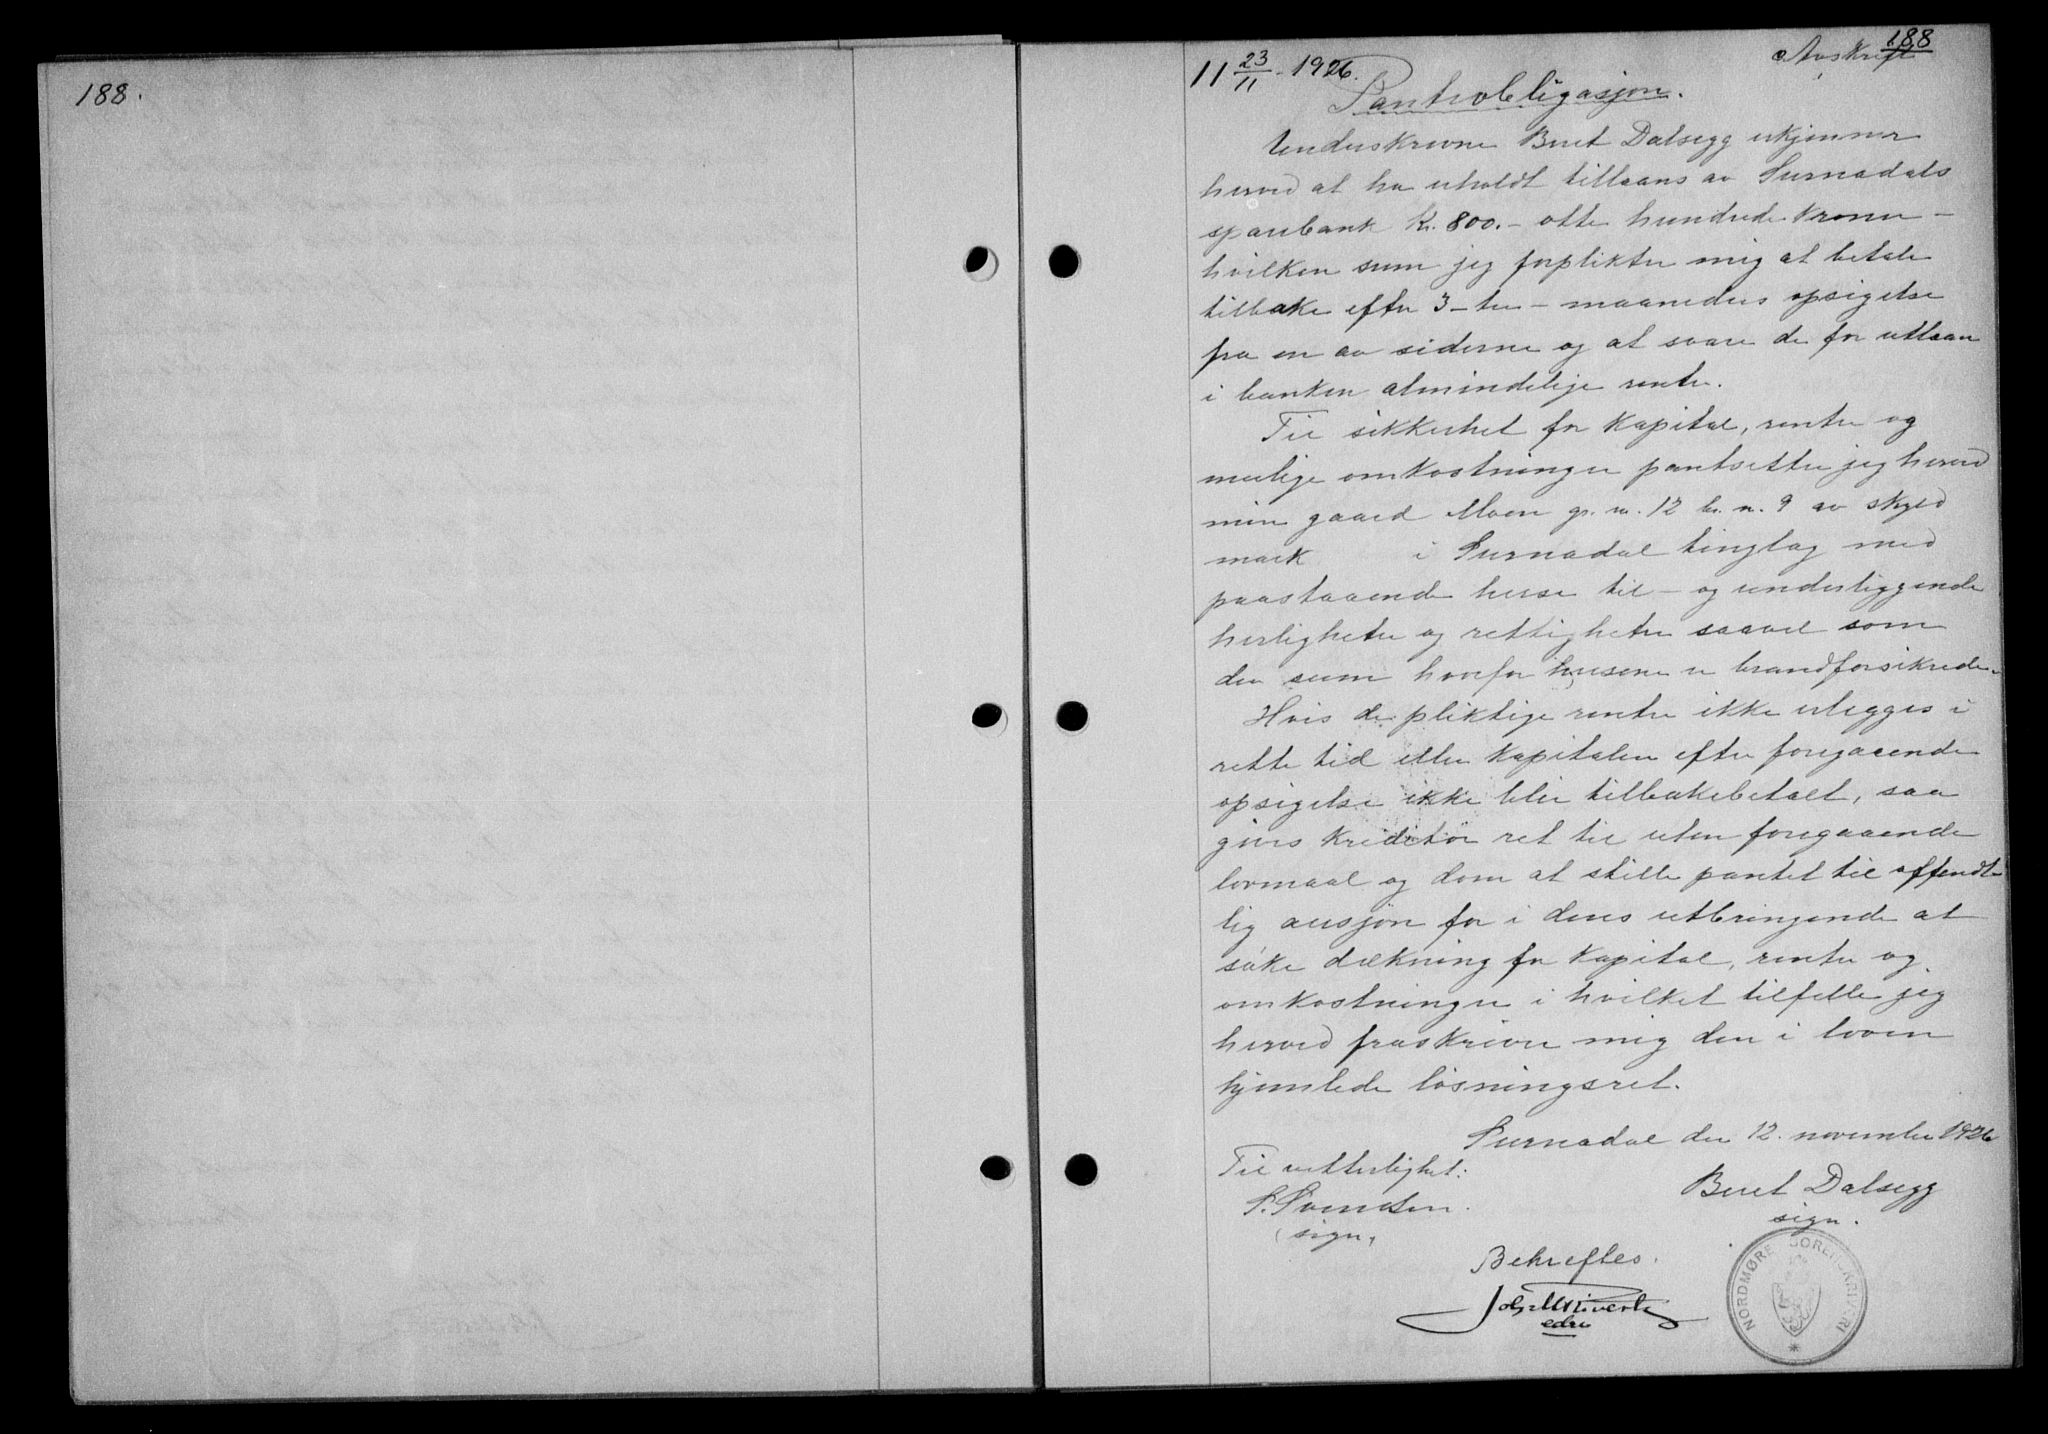 188.
188
Avskrift
11 23/11 - 1926.
Pantobligasjon.
Underskrevne Beret Dalsegg erkjenner
herved at ha erholdt tillaans av Surnadals
sparebank kr. 800.- otte hundrede kroner -
hvilken sum jeg forplikter mig at betale
tilbake efter 3 - tre - maaneders opsigelse
fra en av siderne og at svare de for utlaan
i banken almindelige renter.
Til sikkerhet for kapital, renter og
mulige omkostninger pantsetter jeg herved
min gaard Moen gr. n. 12 br. n. 9 av skyld
mark i Surnadal tinglag med
paastaaende huse til - og underliggende
herligheter og rettigheter saavel som
den sum hvorfor husene er brandforsikrede.
Hvis de pliktige renter ikke erlegges i
rette tid eller kapitalen efter foregaaende
opsigelse ikke blir tilbakebetalt, saa
gives kreditor ret til uten foregaaende
lovmaal og dom at stille pantet til offendt-
lig auksjon for i dens utbringende at
søke dækning for kapital, renter og
omkostninger i hvilket tilfelle jeg
herved fraskriver mig den i loven
hjemlede løsningsret.
Surnadal den 12. november 1926
Til vitterlighet:
Beret Dalsegg
sign.
S. Svendsen
(sign.
Bekreftes.
edrs
NORDMØRE SORENSKRIVERI